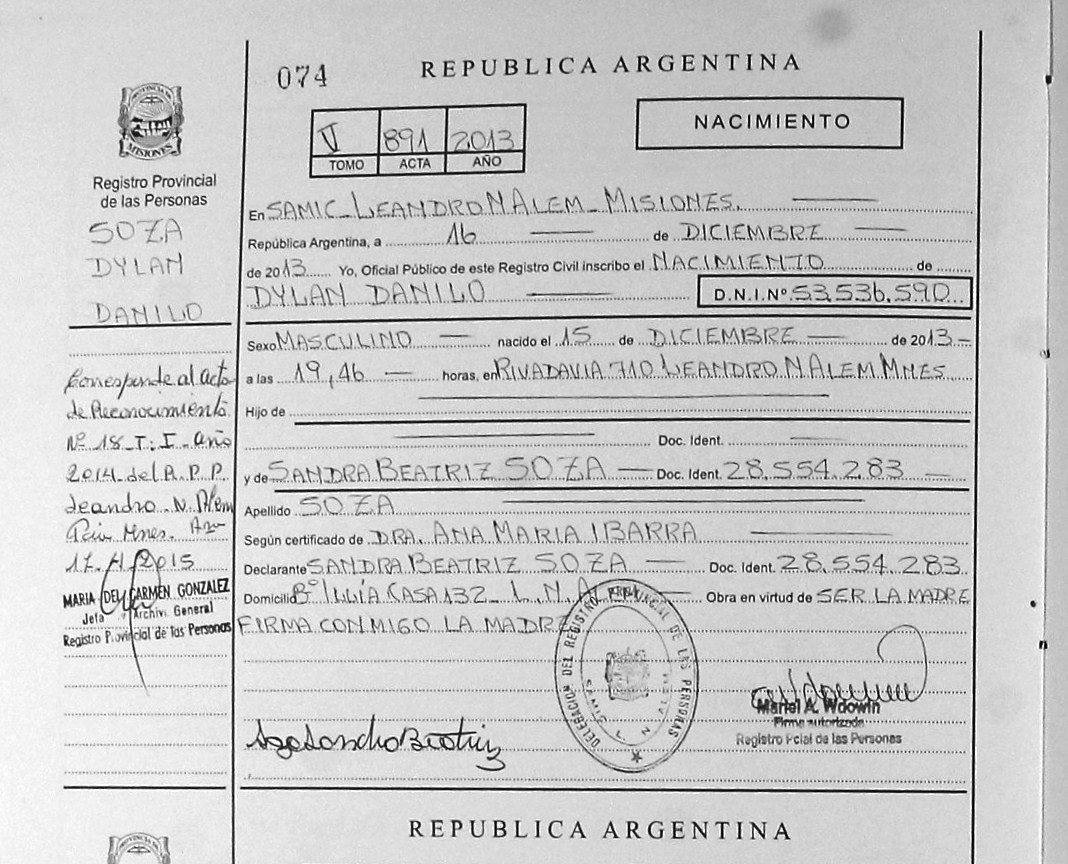 PROVINCIA DE
MISIONES
Registro Provincial
de las Personas
SOZA
DYLAN
DANILO
Corresponde al Acta
de Reconocimiento
Nº 18 T: I - año
2014 del R.P.P.
Leandro N Alem
Mnes.
17 2015
MARIA DEL CARMEN GONZALEZ
Jefa Archiv. General
Registro Provincial de las Personas
074
REPUBLICA ARGENTINA
V 891 2013
TOMO ACTA AÑO
NACIMIENTO
En SAMIC LEANDRO N ALEM MISIONES.
República Argentina, a 16 de DICIEMBRE
de 2013 Yo, Oficial Público de este Registro Civil inscribo el NACIMIENTO de
DYLAN DANILO D.N.I.Nº 53.536.590
Sexo MASCULINO nacido el 15 de DICIEMBRE de 2013
a las 19,46 horas, en RIVADAVIA 710 LEANDRO N ALEM MNES
Hijo de
Doc. Ident.
y de SANDRA BEATRIZ SOZA Doc. Ident. 28.554.283
Apellido SOZA
Según certificado de DRA. ANA MARIA IBARRA
Declarante SANDRA BEATRIZ SOZA Doc. Ident. 28.554.283
Domicilio Bº ILLÍA CASA 132 L.N.A Obra en virtud de SER LA MADRE
FIRMA CONMIGO LA MADRE
DELEGACION DEL REGISTRO PROVINCIAL DE LAS PERSONAS
SAMIC L. N. ALEM
Mariel A. Wdowin
Firma autorizada
Registro Pcial de las Personas
REPUBLICA ARGENTINA